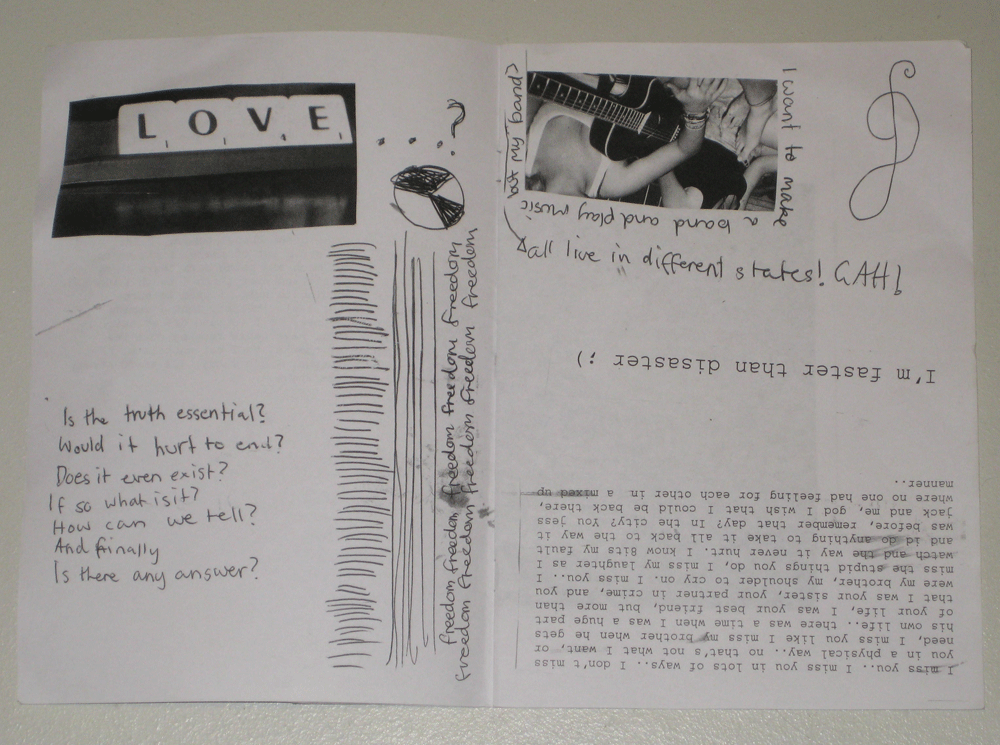 L O V E
1 1 4 1
Is the truth essential?
Would it hurt to end?
Does it even exist?
If so what is it?
How can we tell?
And finally
Is there any answer?
freedom freedom freedom freedom freedom freedom
freedom freedom freedom freedom freedom freedom
I want to make
a band and play music
but my band>
all live in different states! GAH!
I'm faster than disaster ;)
I miss you.. I miss you in lots of ways.. I don't miss
you in a physical way.. no that's not what I want, or
need, I miss you like I miss my brother when he gets
his own life.. there was a time when I was a huge part
of your life, I was your best friend, but more than
that I was your sister, your partner in crime, and you
were my brother, my shoulder to cry on. I miss you.. I
miss the stupid things you do, I miss my laughter as I
watch and the way it never hurt. I know 8its my fault
and id do anything to take it all back to the way it
was before, remember that day? In the city? You jess
jack and me, god I wish that I could be back there,
where no one had feeling for each other in a mixed up
manner..